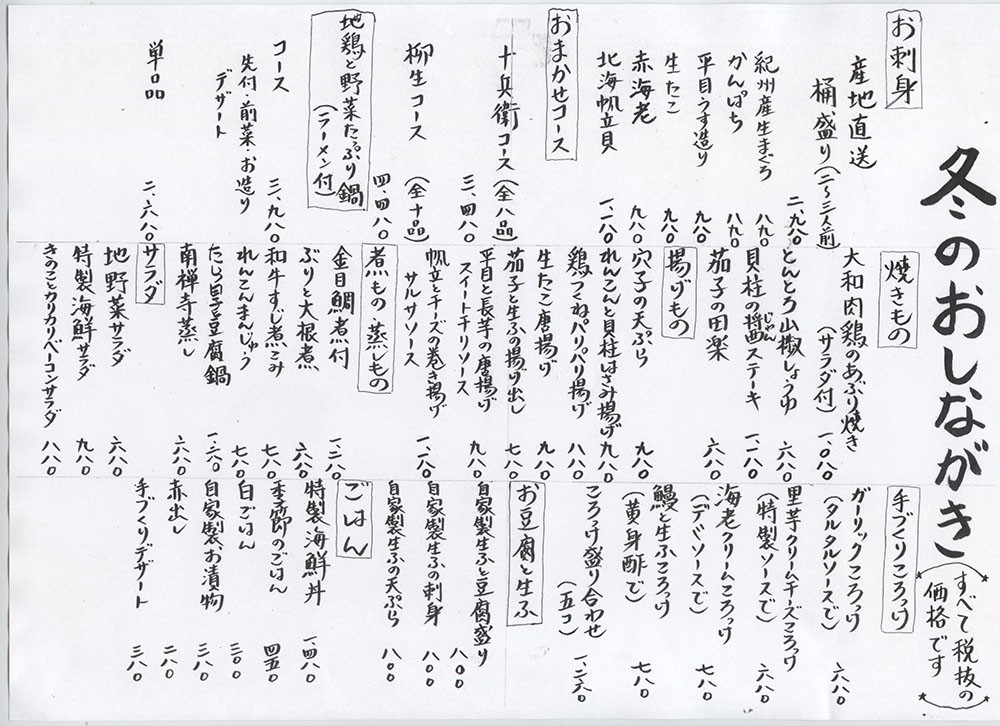 冬のおしながき
すべて税抜の
価格です
お刺身
産地直送
桶盛り(二~三人前) 二、九八〇
紀州産生まぐろ 八八〇
かんぱち 八八〇
平目うす造り 九八〇
生たこ 八八〇
赤海老 九八〇
北海帆立貝 一、一八〇
おまかせコース
十兵衛コース(全八品) 三、四八〇
柳生コース(全十品) 四、四八〇
地鶏と野菜たっぷり鍋
(ラーメン付)
コース 三、九八〇
先付・前菜・お造り
デザート
単品 二、六八〇
焼きもの
大和肉鶏のあぶり焼き
(サラダ付) 一、〇八〇
とんとろ山椒しょうゆ 六八〇
貝柱の醤ステーキ 一、一八〇
じゃん
茄子の田楽 六八〇
揚げもの
穴子の天ぷら 九八〇
れんこんと貝柱はさみ揚げ 九八〇
鶏つくねパリパリ揚げ 八八〇
生たこ唐揚げ 九八〇
茄子と生ふの揚げ出し 七八〇
平目と長芋の唐揚げ 九八〇
スイートチリソース
帆立とチーズの巻き揚げ 一、一八〇
サルサソース
煮もの 蒸しもの
金目鯛煮付 一、二八〇
ぶりと大根煮 六八〇
和牛すじ煮こみ 七八〇
れんこんまんじゅう 七八〇
たら白子豆腐鍋 一、二八〇
南禅寺蒸し 六八〇
サラダ
地野菜サラダ 六八〇
特製海鮮サラダ 九八〇
きのことカリカリベーコンサラダ 八八〇
手づくりころっけ
ガーリックころっけ 六八〇
(タルタルソースで)
里芋クリームチーズころっけ 六八〇
(特製ソースで)
海老クリームころっけ 七八〇
(デベソースで)
鰻と生ふころっけ 七八〇
(黄身酢で)
ころっけ盛り合わせ 一、二八〇
(五コ)
お豆腐と生ふ
自家製生ふと豆腐盛り 八〇〇
自家製生ふの刺身 八〇〇
自家製生ふの天ぷら 八〇〇
ごはん
特製海鮮丼 一、四八〇
季節のごはん 四五〇
白ごはん 三〇〇
自家製お漬物 三八〇
赤出し 二八〇
手づくりデザート 三八〇